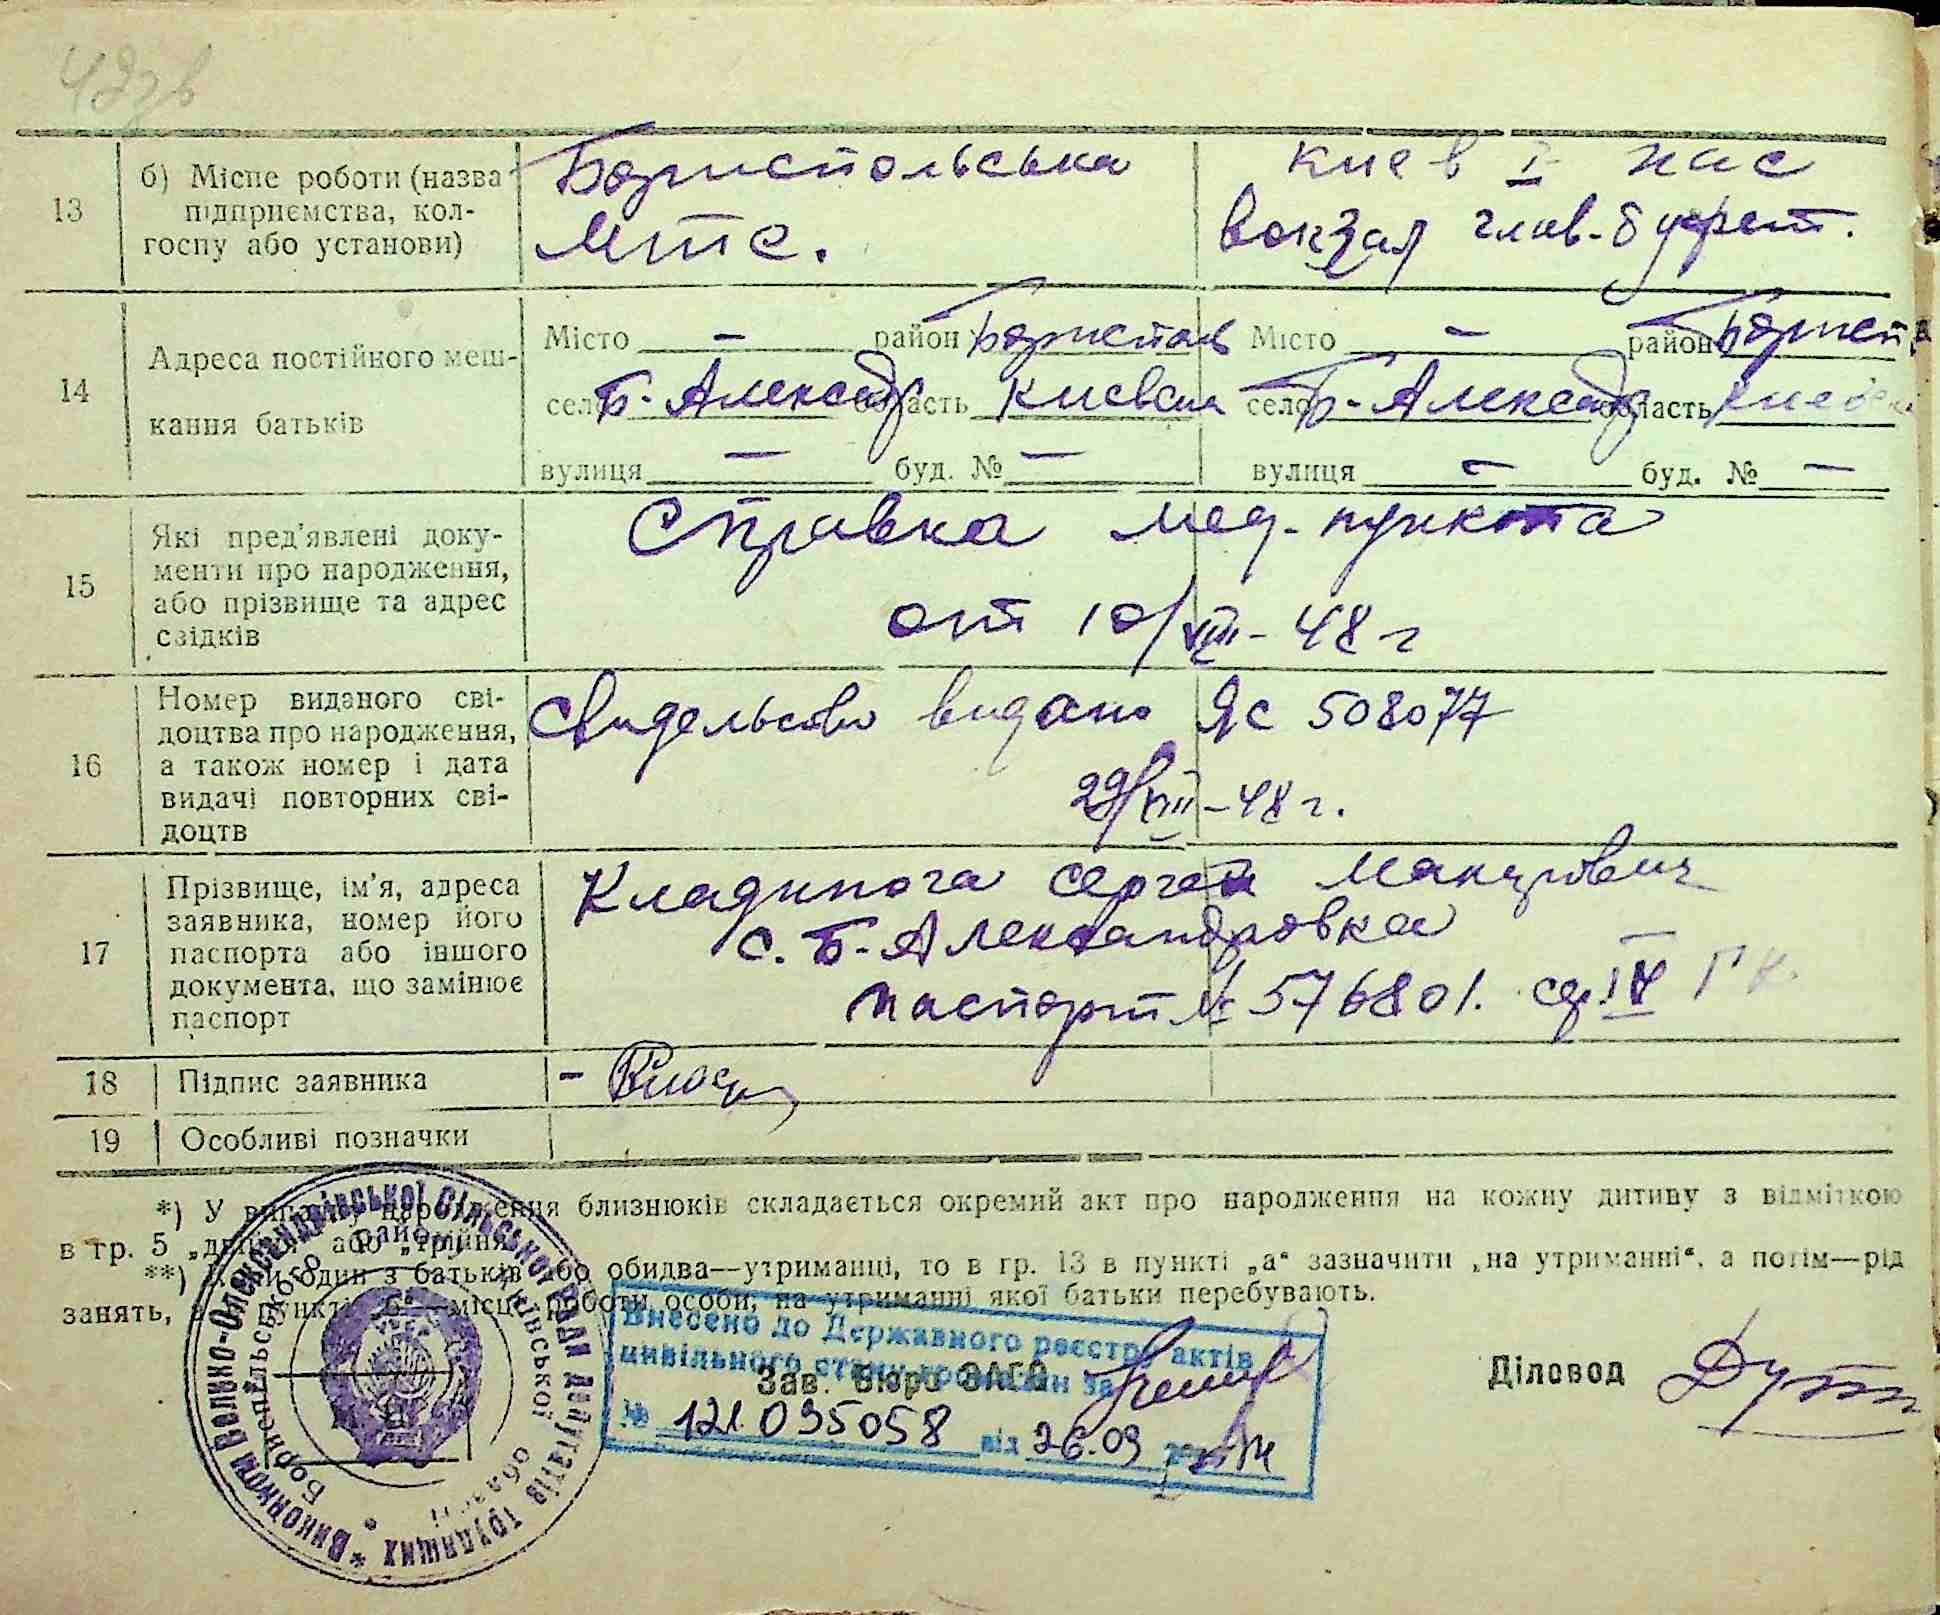 42зв
13
б) Місце роботи (назва
підприємства, кол-
госпу або установи)
Бориспольська
МТС.
Киев I пас
вокзал глав-буфет.
14
Адреса постійного меш-
кання батьків
Місто — район Борисполь
село Б-Александр область Киевск
вулиця — буд. № —
Місто — район Борисп
село Б-Александр область Киевск
вулиця — буд. № —
15
Які пред'явлені доку-
менти про народження,
або прізвище та адрес
свідків
Справка мед-пункта
от 10/VIII-48 г
16
Номер виданого сві-
доцтва про народження,
а також номер і дата
видачі повторних сві-
доцтв
видано ЯС 508077
29/VIII-48 г.
17
Прізвище, ім'я, адреса
заявника, номер його
паспорта або іншого
документа, що замінює
паспорт
Кладинога Сергей Макарович
с. Б-Александровка
паспорт № 576801. сер IV
18
Підпис заявника
19
Особливі позначки
*) У випадку народження близнюків складається окремий акт про народження на кожну дитину з відміткою
в гр. 5 „двійня" або „трійня".
**) Коли один з батьків або обидва—утриманці, то в гр. 13 в пункті „а" зазначити „на утриманні", а потім—рід
занять, а в пункті „б"—місце роботи особи, на утриманні якої батьки перебувають.
Зав. Бюро ЗАГС
Діловод
Внесено до Державного реєстру актів
цивільного стану громадян за
№ 121035058 від 26.09
* Виконком Велико-Олександрівської сільської Ради депутатів трудящих
Бориспільського району Київської області